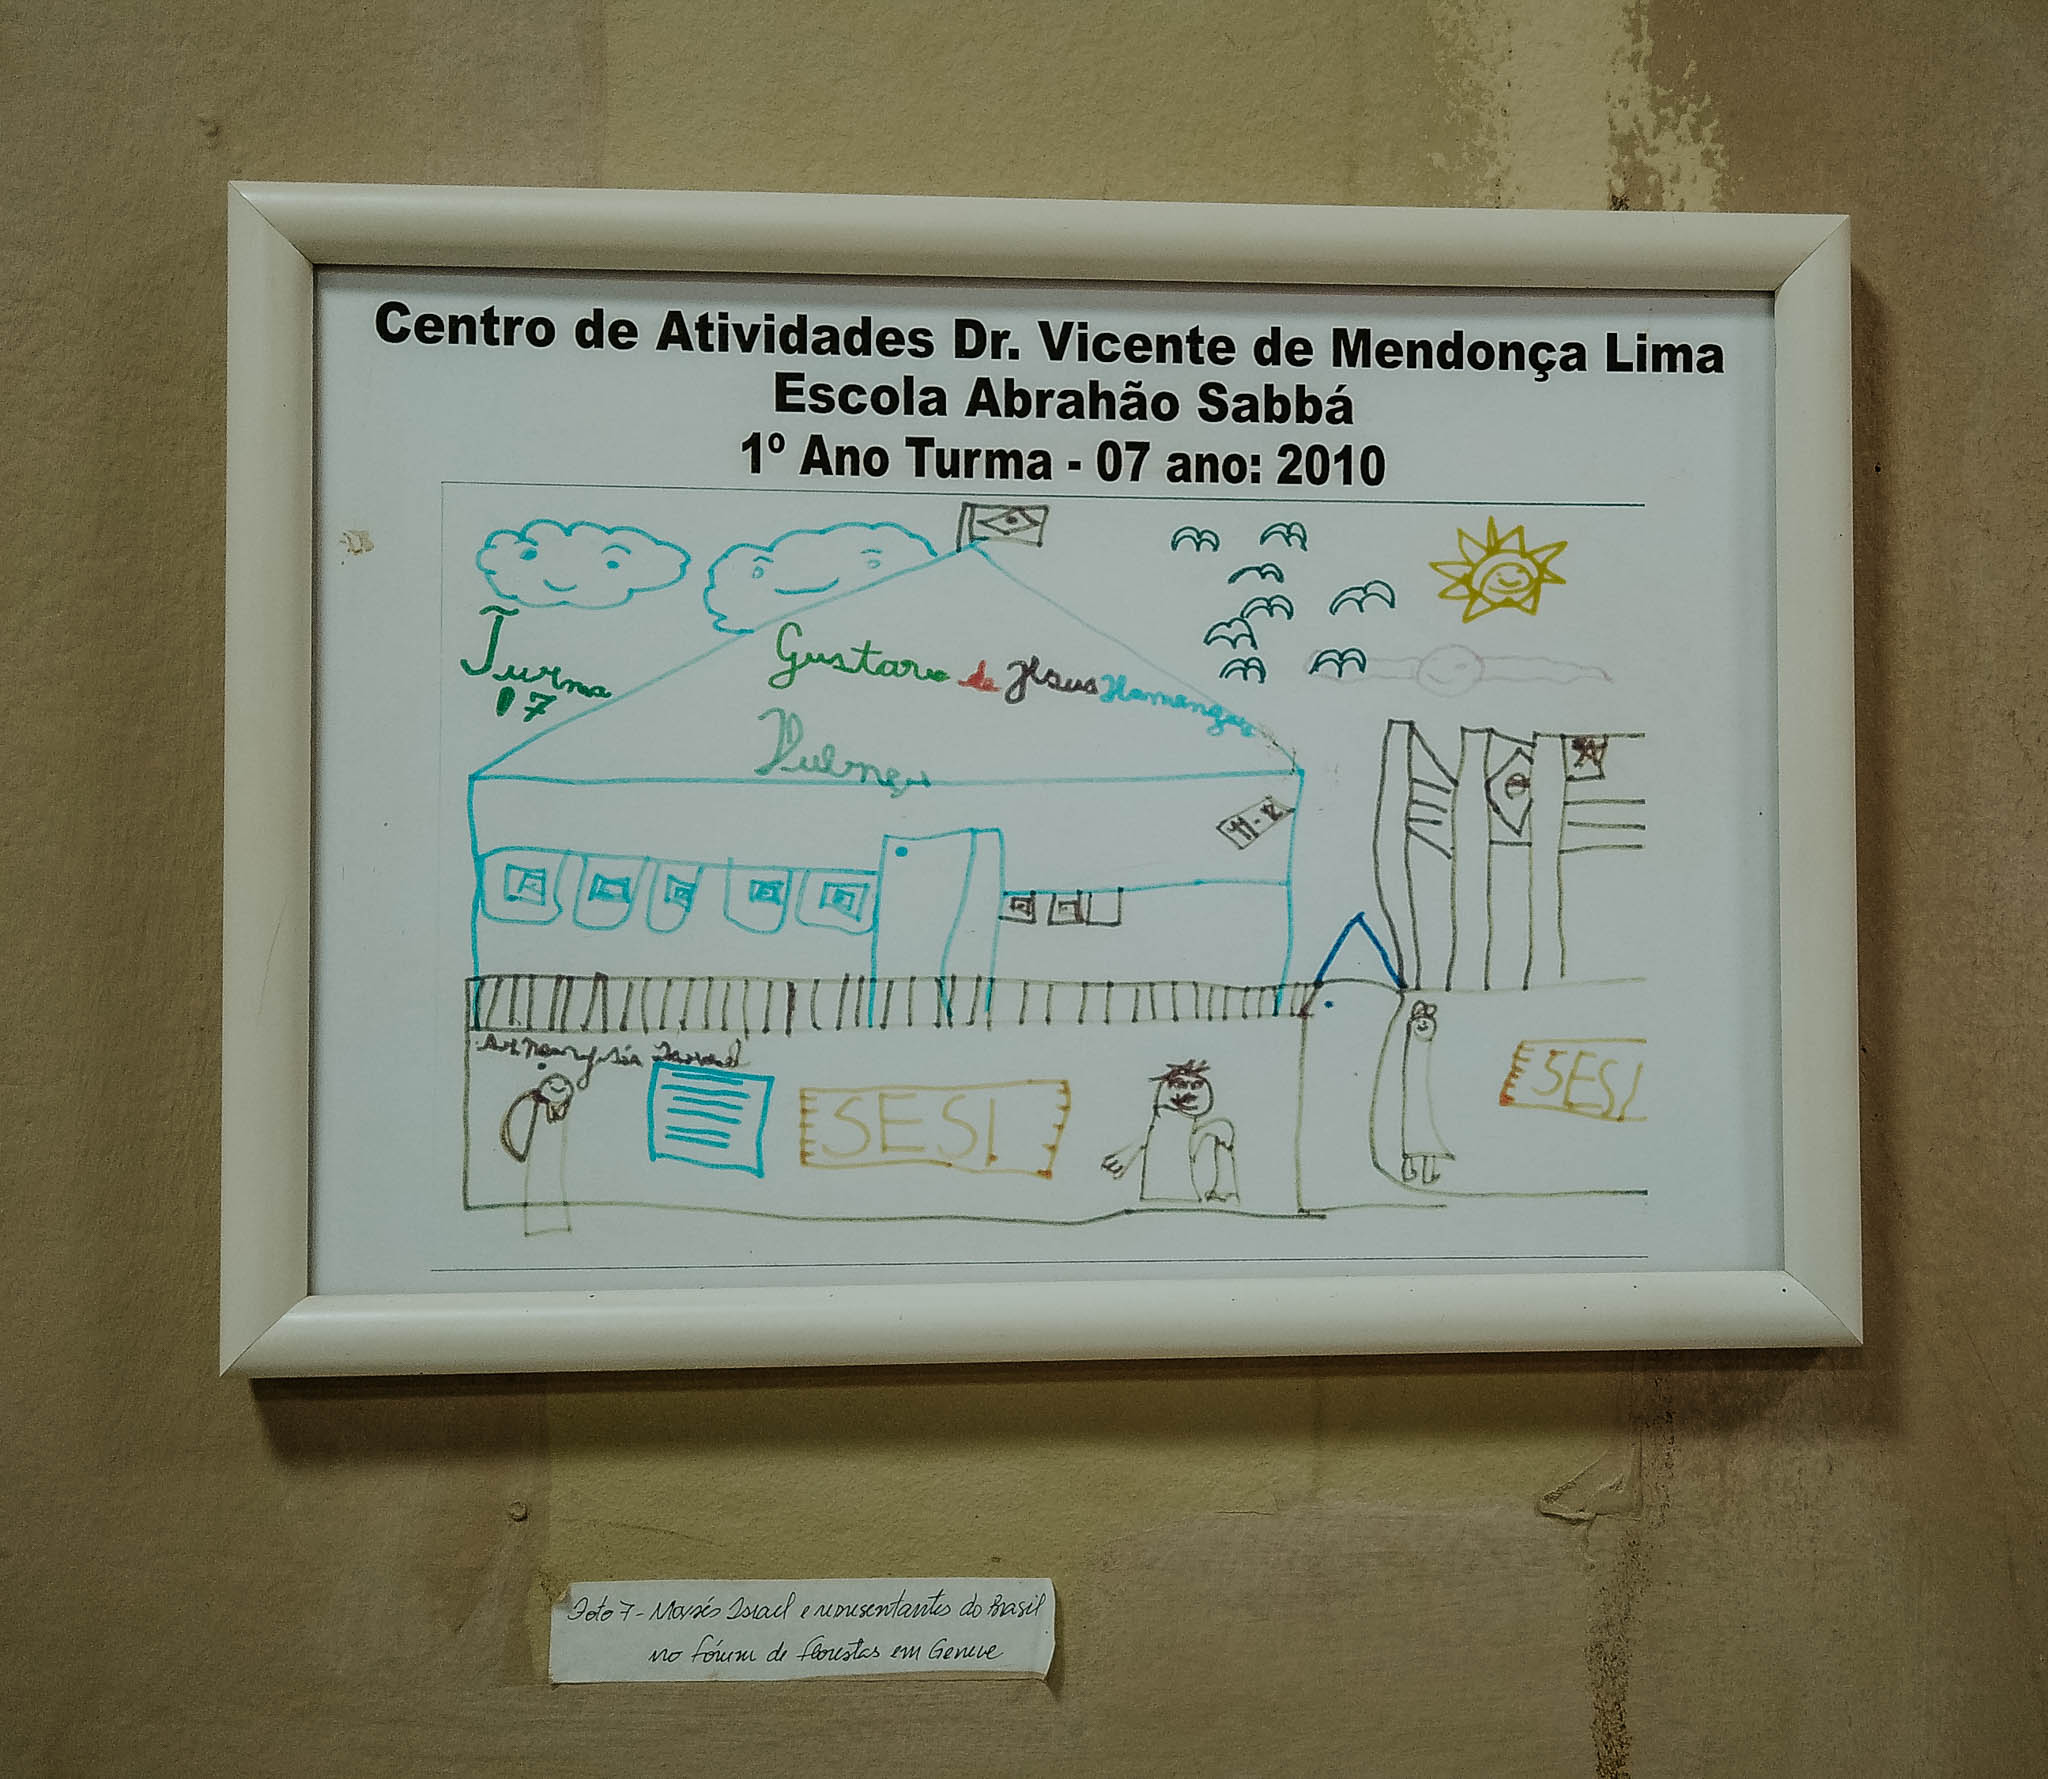 Centro de Atividades Dr. Vicente de Mendonça Lima
Escola Abrahão Sabbá
1º Ano Turma - 07 ano: 2010
Turma
07
Gustavo de Jesus
11-12
SESI
SESI
Foto 7 - Moysés Israel e representantes do Brasil
no fórum de florestas em Geneve